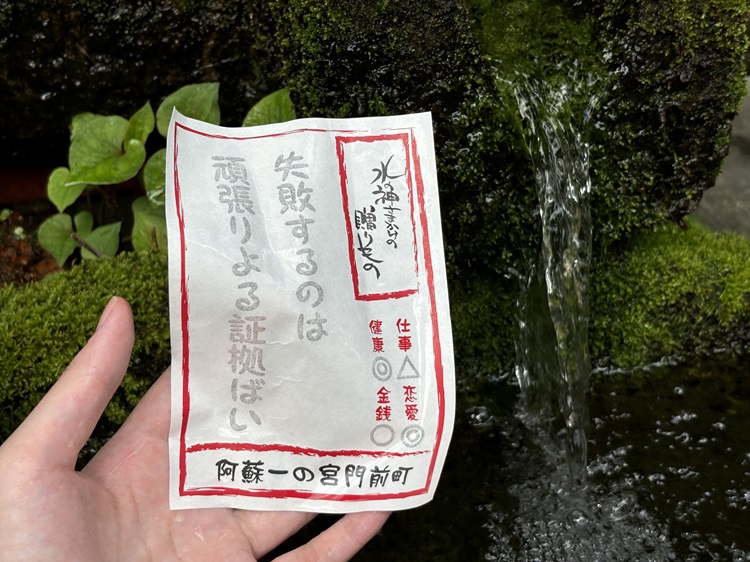 水の神さまからの
贈りもの
失敗するのは
頑張りよる証拠ばい
仕事△
恋愛◎
健康◎
金銭○
阿蘇一の宮門前町